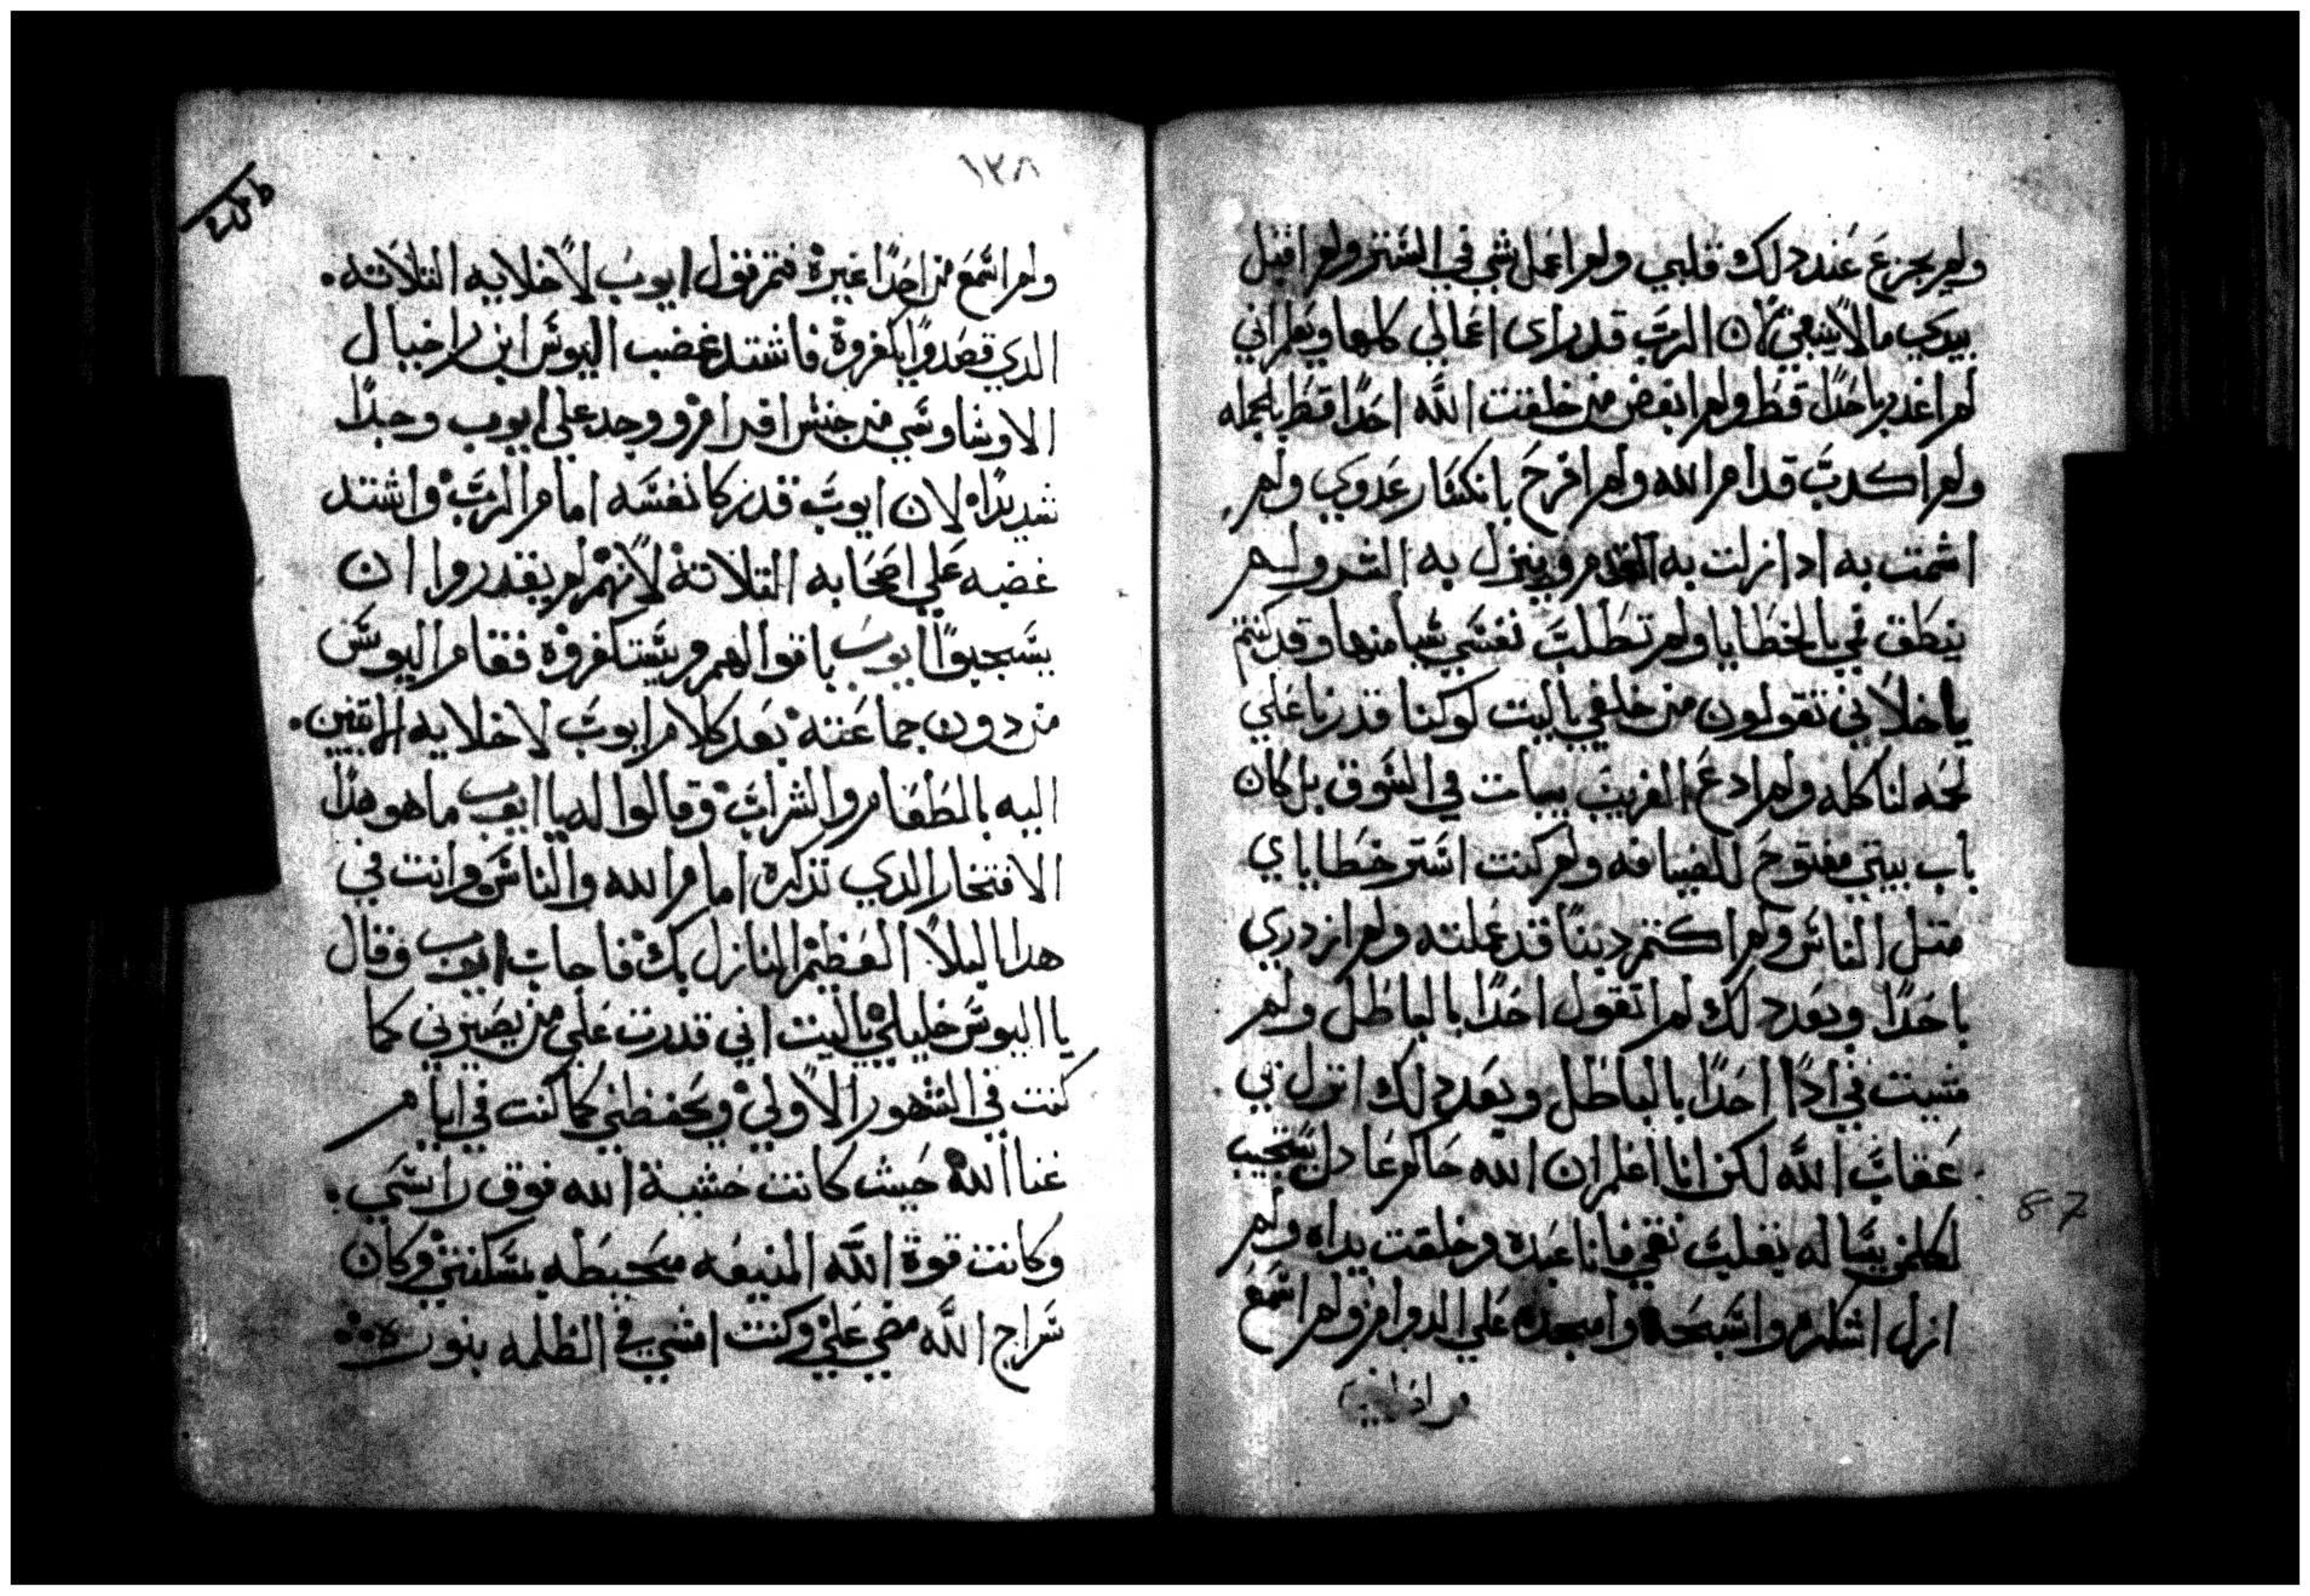 ولم يجزع عند دلك قلبي ولم اعمل شي في الستر ولم اقبل
بيدي ما لا ينبغي لان الرب قد راى اعمالي كلها ويعلم اني
لم اغدر باحدًا قط ولم ابغض من خلقت الله احدًا قط بالجمله
ولم اكدب قدام الله ولم افرح بانكسار عدوي ولم
اشمت به ادا زلت به القدم وينزل به الشر ولم
ينطق في بالخطايا ولم تطلب نفسي شيا منها وقد كنتم
يا خلاني تقولون من خلفي ياليت لو كنا قدرنا علي
لحمه لناكله ولم ادع الغريب يبات في السوق بل كان
باب بيتي مفتوح للضيافه ولم كنت استر خطاياي
متل الناس ولم اكتم دينًا قد عملته ولم ازدري
باحدًا وبعد دلك لم اتقول احدًا بالباطل ولم
مشيت في ادا احدًا بالباطل وبعد دلك انزل بي
عقاب الله لكن انا اعلم ان الله حاكم عادل يستجيب
لكلمن يساله بقلب نقي فانا عبده وخلقت يداه ولم
ازل اشكره واسبحه وامجده علي الدوام ولم اسمع
١٣٨
ولم اسمع من احدًا غيره فتم قول ايوب لاخلايه التلاته
الدي قصدوا يكفروه فاشتد غضب اليوس ابن راخيال
الاوشاوسي من جنس اقرام ووجد علي ايوب وجدًا
شديدًا لان ايوب قد زكا نفسه امام الرب واشتد
غضبه علي اصحابه التلاته لانهم لم يقدروا ان
يستجيبوا ايوب باقوالهم ويستكفروه فقام اليوس
من دون جماعته بعد كلام ايوب لاخلايه الاتيين
اليه بالطعام والشراب وقالوا له يا ايوب ما هو هدا
الافتخار الدي تذكره امام الله والناس وانت في
هدا البلا العظيم المنازل بك فاجاب ايوب وقال
يا اليوس خليلي ياليت اني قدرت علي من يصيرني كما
كنت في الشهور الاولي ويحفظني كما كنت في ايام
غنا الله حيث كانت خشية الله فوق راسي
وكانت قوة الله المنيعه محيطه بسكني وكان
سراج الله مضي علي وكنت امشي في الظلمه بنوره
87